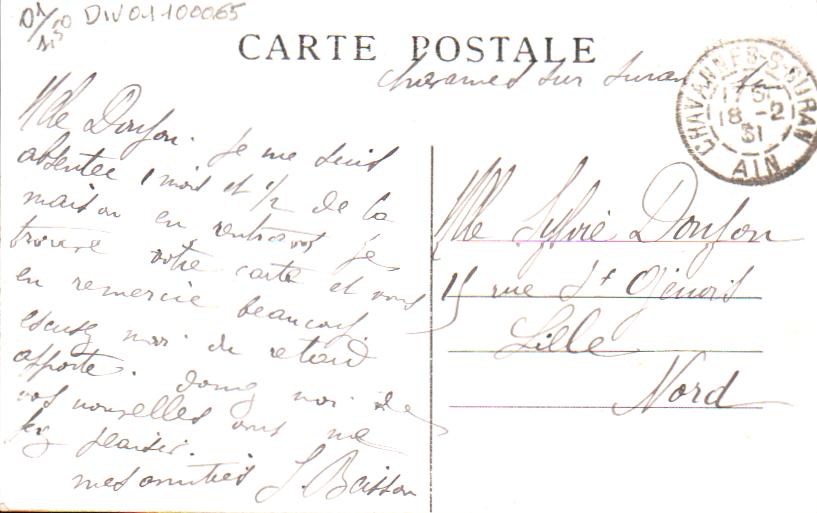 01/
1.50
DIV01100065
CARTE POSTALE
sur Suran
CHAVANNES-S-SURAN
18-2
31
AIN
Mlle Doufon. Je me suis
absentee 1 mois et 1/2 de la
maison en rentrant je
trouve votre carte et vous
en remercie beaucoup,
escusez moi du retard
apporte. donnez moi de
vos nouvelles vous me
ferez plaisir.
mes amitiés J. Buisson
Mlle Sylvie Doufon
15 rue St Génois
Lille
Nord